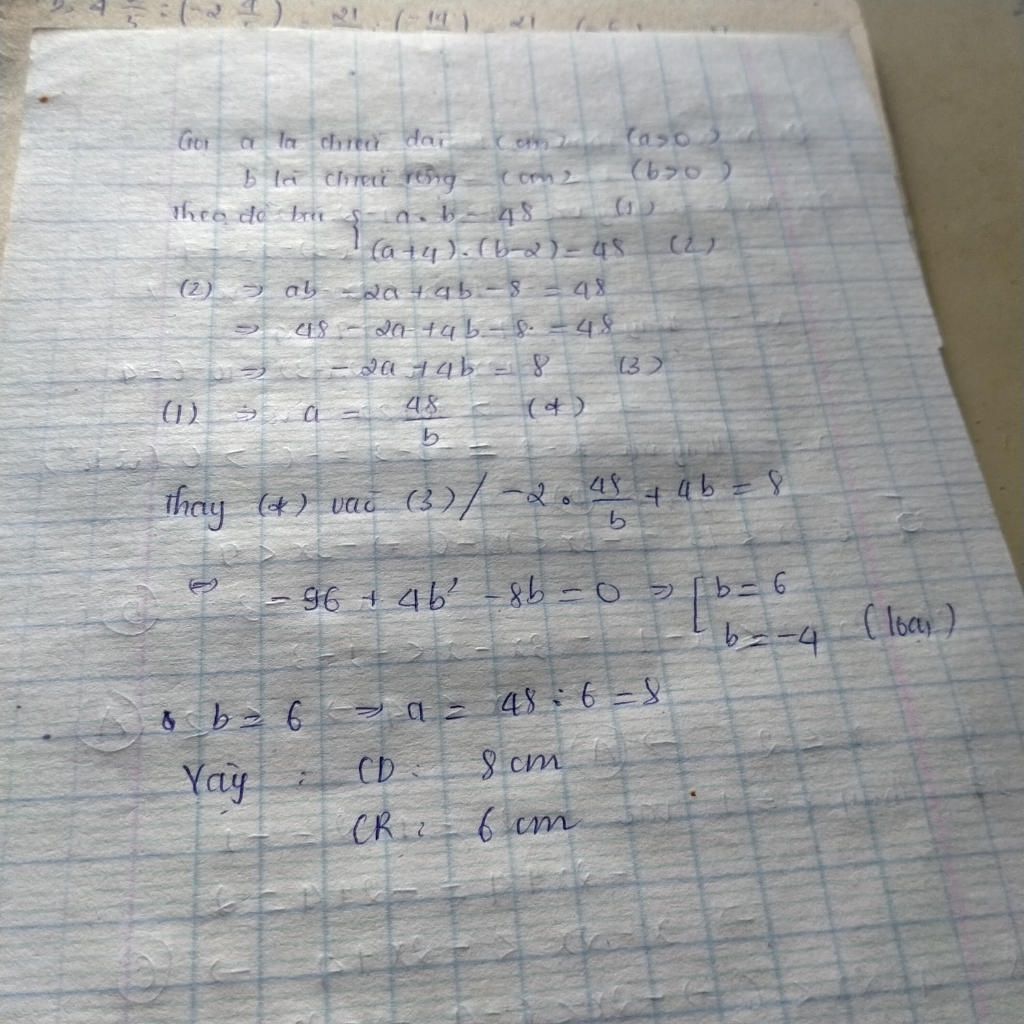 Gọi a là chiều dài (cm) (a>0)
b là chiều rộng (cm) (b>0)
Theo đề bài { a.b = 48 (1)
(a+4).(b-2) = 48 (2)
(2) => ab - 2a + 4b - 8 = 48
=> 48 - 2a + 4b - 8 = 48
=> -2a + 4b = 8 (3)
(1) => a = 48/b (*)
Thay (*) vào (3) / -2 . 48/b + 4b = 8
<=> -96 + 4b² - 8b = 0 => [ b = 6
b = -4 (loại)
b = 6 => a = 48 : 6 = 8
Vậy : CD : 8 cm
CR : 6 cm